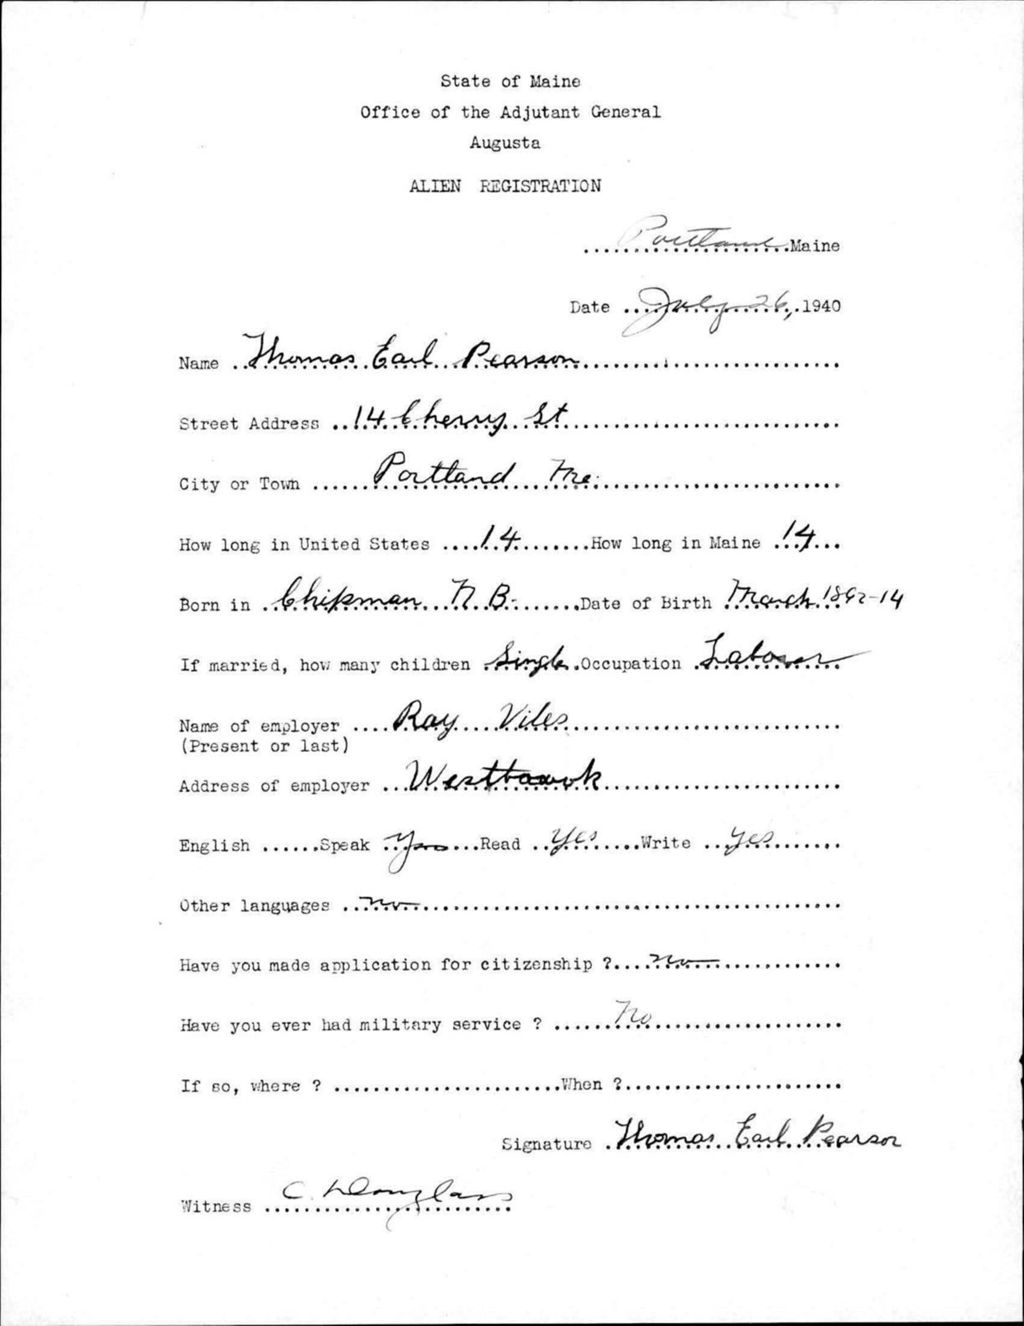 State of Maine
Office of the Adjutant General
Augusta
ALIEN REGISTRATION
Portland Maine
Date July 26, 1940
Name Thomas Earl Pearson
Street Address 14 Cherry St
City or Town Portland Me.
How long in United States 14 How long in Maine 14
Born in Chipman N.B. Date of Birth March 1892-14
If married, how many children Single Occupation Laborer
Name of employer Ray Viles
(Present or last)
Address of employer Westbrook
English Speak Yes Read Yes Write Yes
Other languages no
Have you made application for citizenship ? No
Have you ever had military service ? No
If so, where ? When ?
Signature Thomas Earl Pearson
Witness C. Douglass